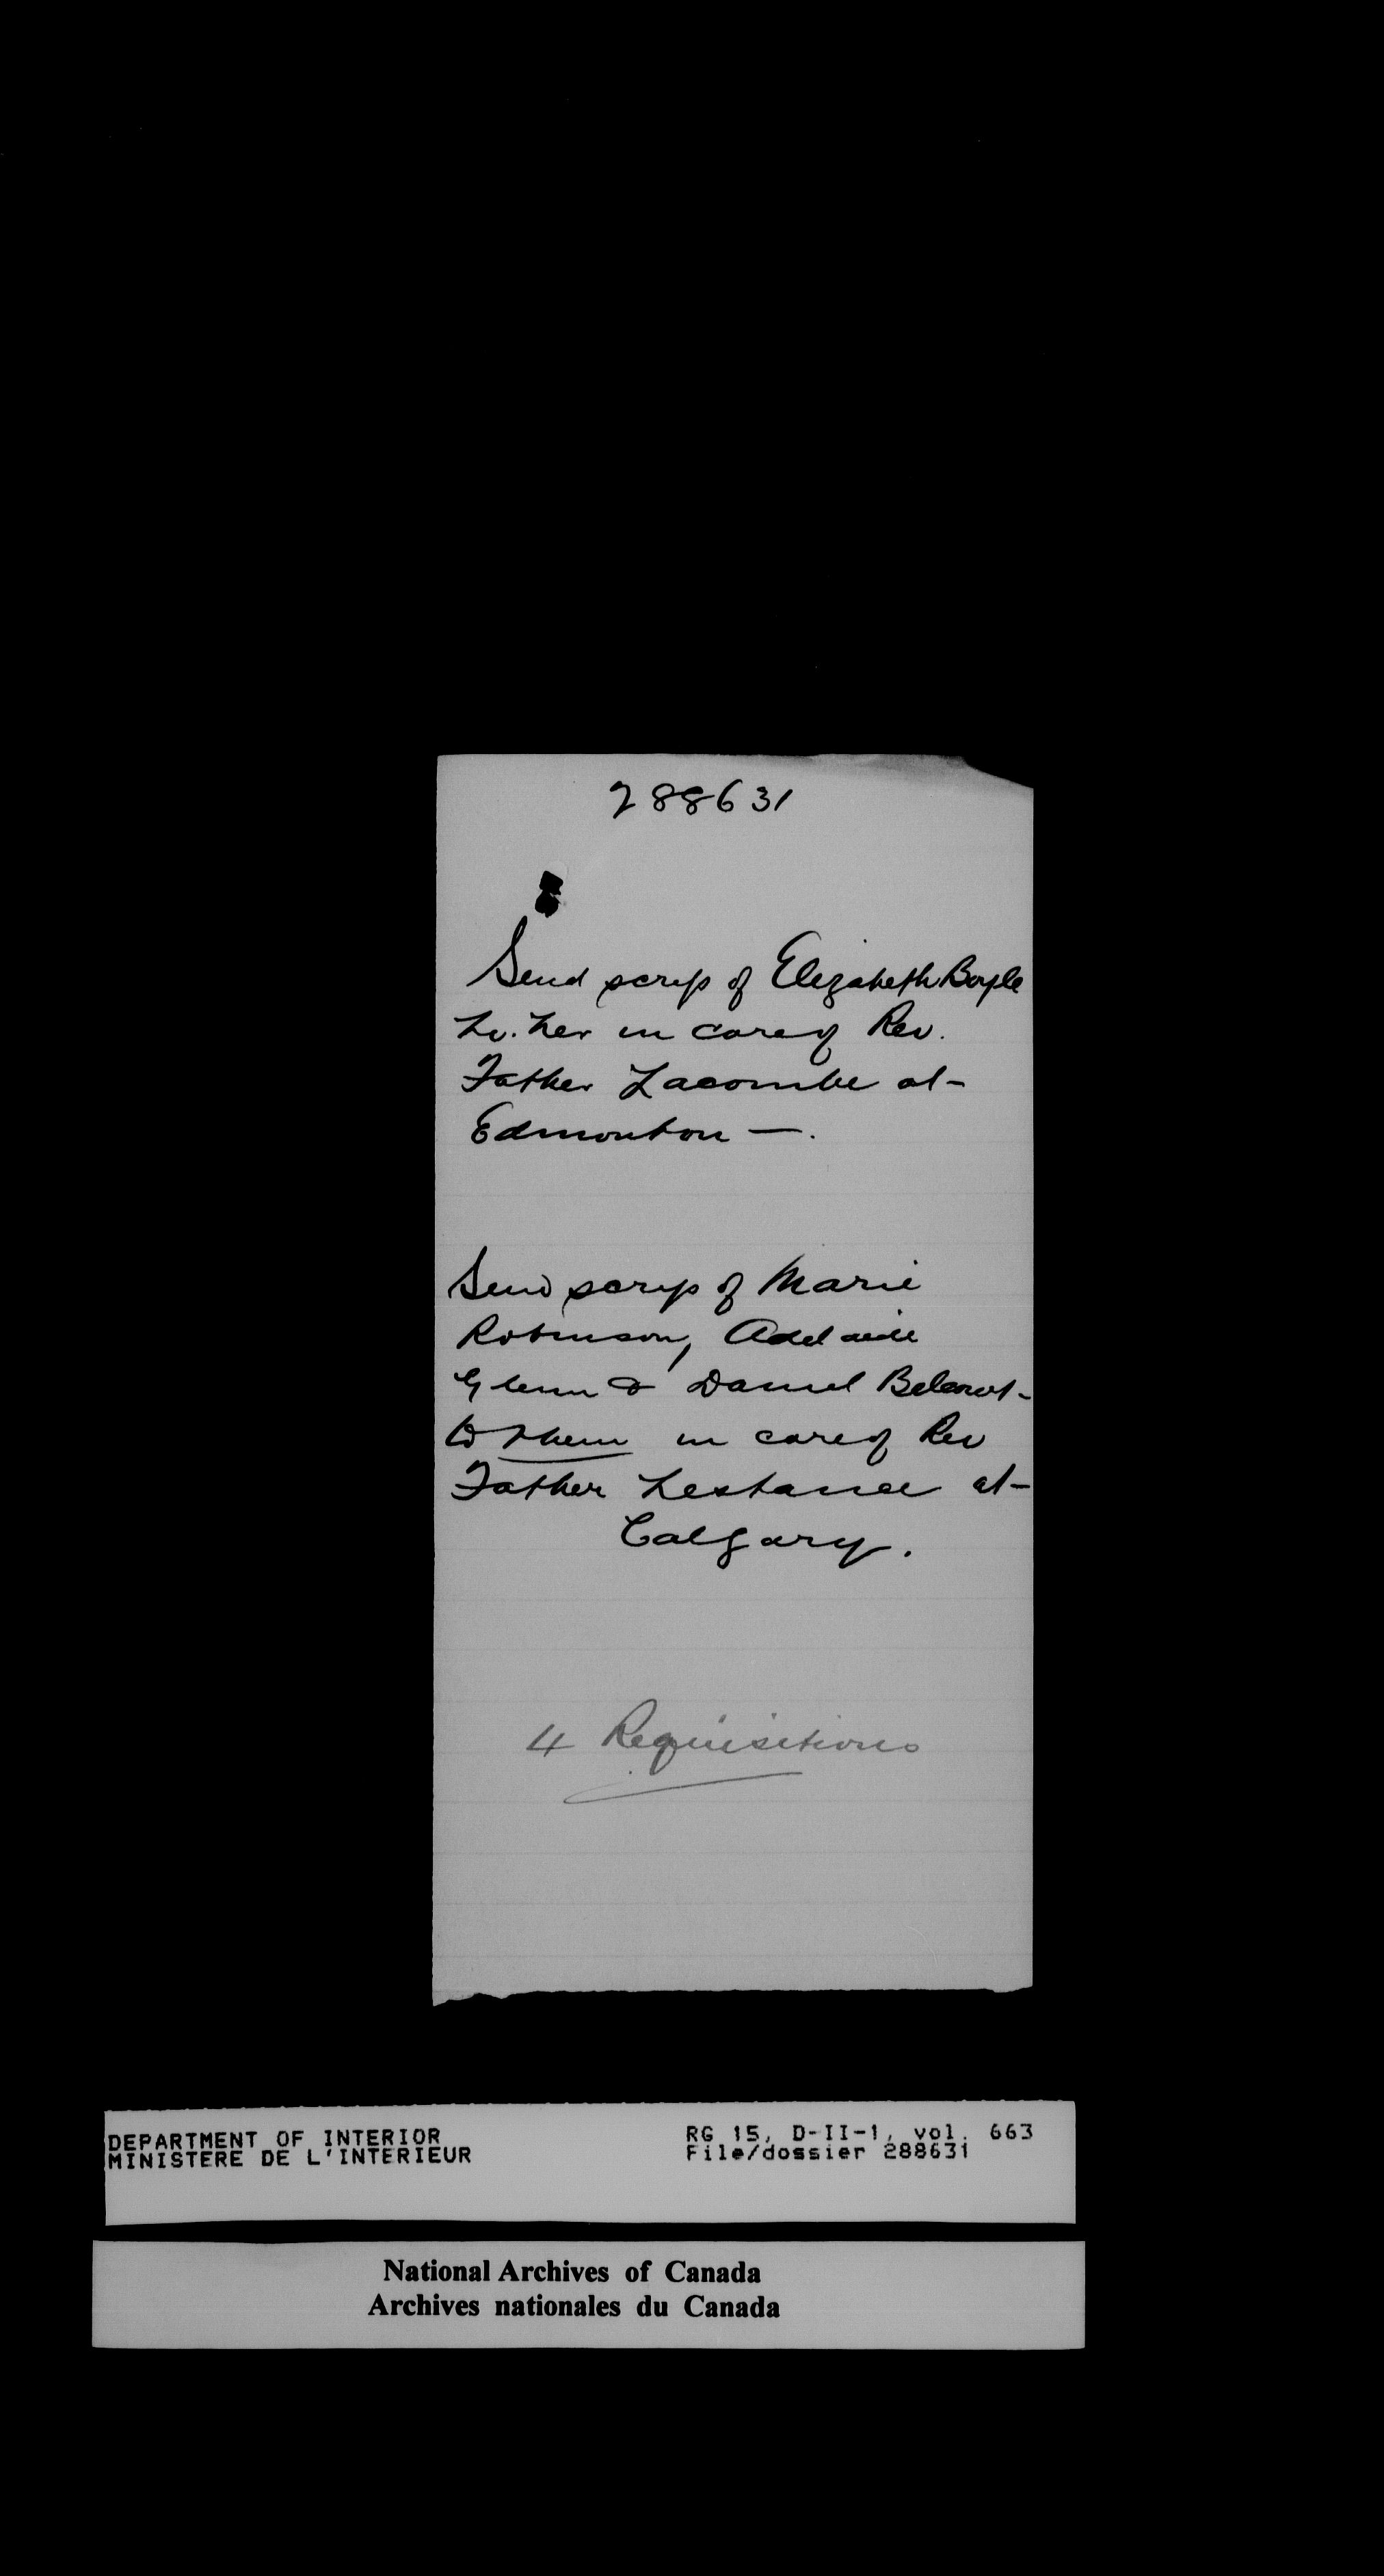 288631
Send scrip of Elizabeth Boyle
to her in care of Rev.
Father Lacombe at
Edmonton —.
Send scrip of Marie
Robinson, Adelaide
Glenn & Daniel Belcourt
to them in care of Rev
Father Lestanc at
Calgary.
4 Requisitions
DEPARTMENT OF INTERIOR
MINISTERE DE L'INTERIEUR
RG 15, D-II-1, vol. 663
File/dossier 288631
National Archives of Canada
Archives nationales du Canada